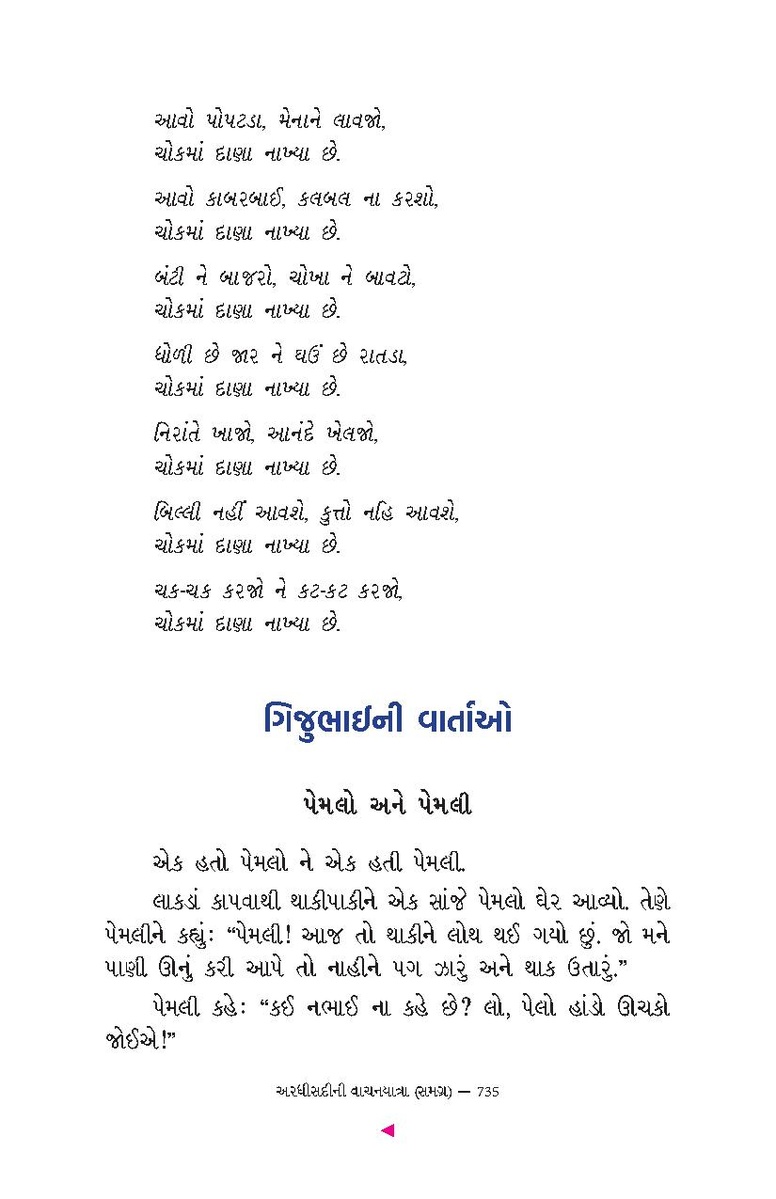 આવો પોપટડા, મેનાને લાવજો,
ચોકમાં દાણા નાખ્યા છે.
આવો કાબરબાઈ, કલબલ ના કરશો,
ચોકમાં દાણા નાખ્યા છે.
બંટી ને બાજરો, ચોખા ને બાવટો,
ચોકમાં દાણા નાખ્યા છે.
ધોળી છે જાર ને ઘઉં છે રાતડા,
ચોકમાં દાણા નાખ્યા છે.
નિરાંતે ખાજો, આનંદે ખેલજો,
ચોકમાં દાણા નાખ્યા છે.
બિલ્લી નહીં આવશે, કુત્તો નહિ આવશે,
ચોકમાં દાણા નાખ્યા છે.
ચક-ચક કરજો ને કટ-કટ કરજો,
ચોકમાં દાણા નાખ્યા છે.
ગિજુભાઈની વાર્તાઓ
પેમલો અને પેમલી
એક હતો પેમલો ને એક હતી પેમલી.
લાકડાં કાપવાથી થાકીપાકીને એક સાંજે પેમલો ઘેર આવ્યો. તેણે
પેમલીને કહ્યું: “પેમલી! આજ તો થાકીને લોથ થઈ ગયો છું. જો મને
પાણી ઊનું કરી આપે તો નાહીને પગ ઝારું અને થાક ઉતારું.”
પેમલી કહે: “કઈ નભાઈ ના કહે છે? લો, પેલો હાંડો ઊચકો
જોઈએ!”
અરધીસદીની વાચનયાત્રા (સમગ્ર) — 735